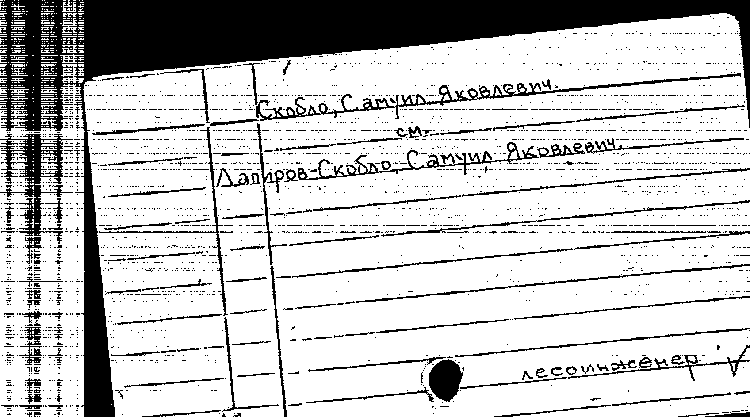 Скобло, Самуил Яковлевич.
см.
Лапиров-Скобло, Самуил Яковлевич.
лесоинженер